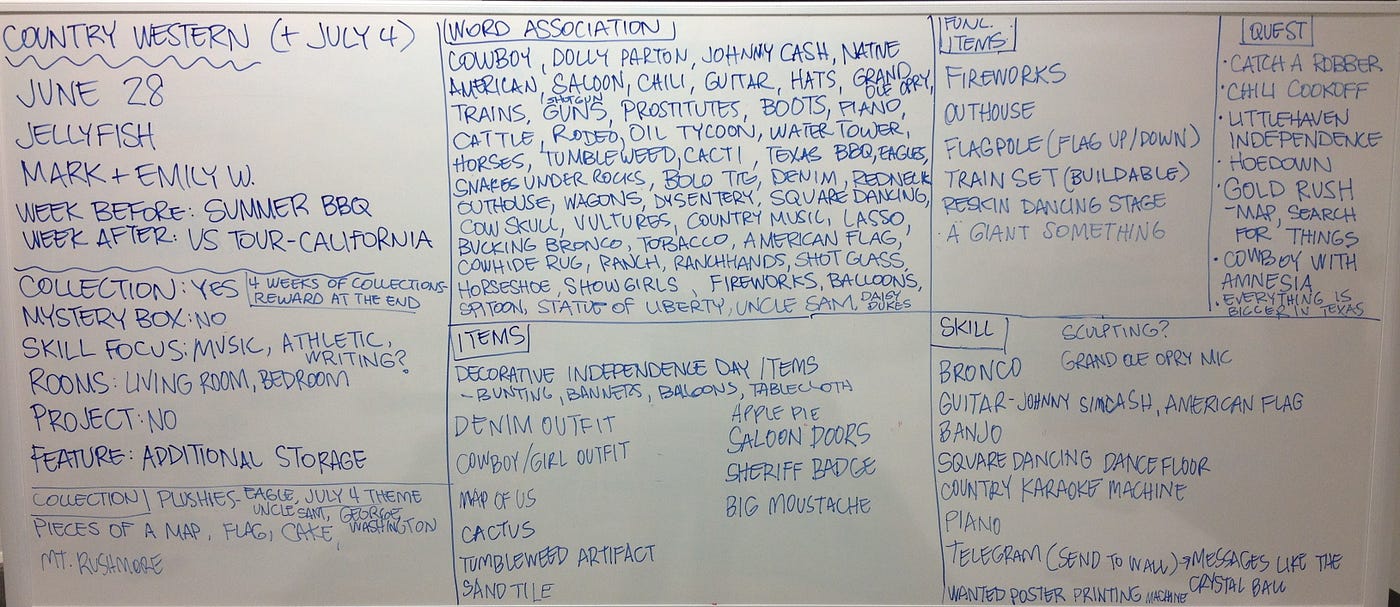 COUNTRY WESTERN (+ JULY 4)
JUNE 28
JELLYFISH
MARK + EMILY W.
WEEK BEFORE: SUMMER BBQ
WEEK AFTER: US TOUR-CALIFORNIA
COLLECTION: YES
4 WEEKS OF COLLECTIONS
REWARD AT THE END
MYSTERY BOX: NO
SKILL FOCUS: MUSIC, ATHLETIC,
WRITING?
ROOMS: LIVING ROOM, BEDROOM
PROJECT: NO
FEATURE: ADDITIONAL STORAGE
COLLECTION PLUSHIES- EAGLE, JULY 4 THEME
UNCLE SAM, GEORGE
WASHINGTON
PIECES OF A MAP, FLAG, CAKE,
MT. RUSHMORE
WORD ASSOCIATION
COWBOY, DOLLY PARTON, JOHNNY CASH, NATIVE
AMERICAN, SALOON, CHILI, GUITAR, HATS, GRAND
OLE OPRY,
SHOTGUN
TRAINS, GUNS, PROSTITUTES, BOOTS, PIANO,
CATTLE, RODEO, OIL TYCOON, WATER TOWER,
HORSES, TUMBLEWEED, CACTI, TEXAS BBQ, EAGLES,
SNAKES UNDER ROCKS, BOLO TIE, DENIM, REDNECK
OUTHOUSE, WAGONS, DYSENTERY, SQUARE DANCING,
COW SKULL, VULTURES, COUNTRY MUSIC, LASSO,
BUCKING BRONCO, TOBACCO, AMERICAN FLAG,
COWHIDE RUG, RANCH, RANCHHANDS, SHOT GLASS,
HORSESHOE, SHOWGIRLS, FIREWORKS, BALLOONS,
SPITOON, STATUE OF LIBERTY, UNCLE SAM, DAISY
DUKES
ITEMS
DECORATIVE INDEPENDENCE DAY ITEMS
- BUNTING, BANNERS, BALOONS, TABLECLOTH
DENIM OUTFIT
COWBOY/GIRL OUTFIT
MAP OF US
CACTUS
TUMBLEWEED ARTIFACT
SAND TILE
APPLE PIE
SALOON DOORS
SHERIFF BADGE
BIG MOUSTACHE
FUNC.
ITEMS
FIREWORKS
OUTHOUSE
FLAGPOLE (FLAG UP/DOWN)
TRAIN SET (BUILDABLE)
RESKIN DANCING STAGE
A GIANT SOMETHING
QUEST
• CATCH A ROBBER
• CHILI COOKOFF
• LITTLEHAVEN
INDEPENDENCE
• HOEDOWN
• GOLD RUSH
- MAP, SEARCH
FOR THINGS
• COWBOY WITH
AMNESIA
• EVERYTHING IS
BIGGER IN TEXAS
SKILL
SCULPTING?
GRAND OLE OPRY MIC
BRONCO
GUITAR - JOHNNY SIMCASH, AMERICAN FLAG
BANJO
SQUARE DANCING DANCEFLOOR
COUNTRY KARAOKE MACHINE
PIANO
TELEGRAM (SEND TO WALL) → MESSAGES LIKE THE
CRYSTAL BALL
WANTED POSTER PRINTING MACHINE